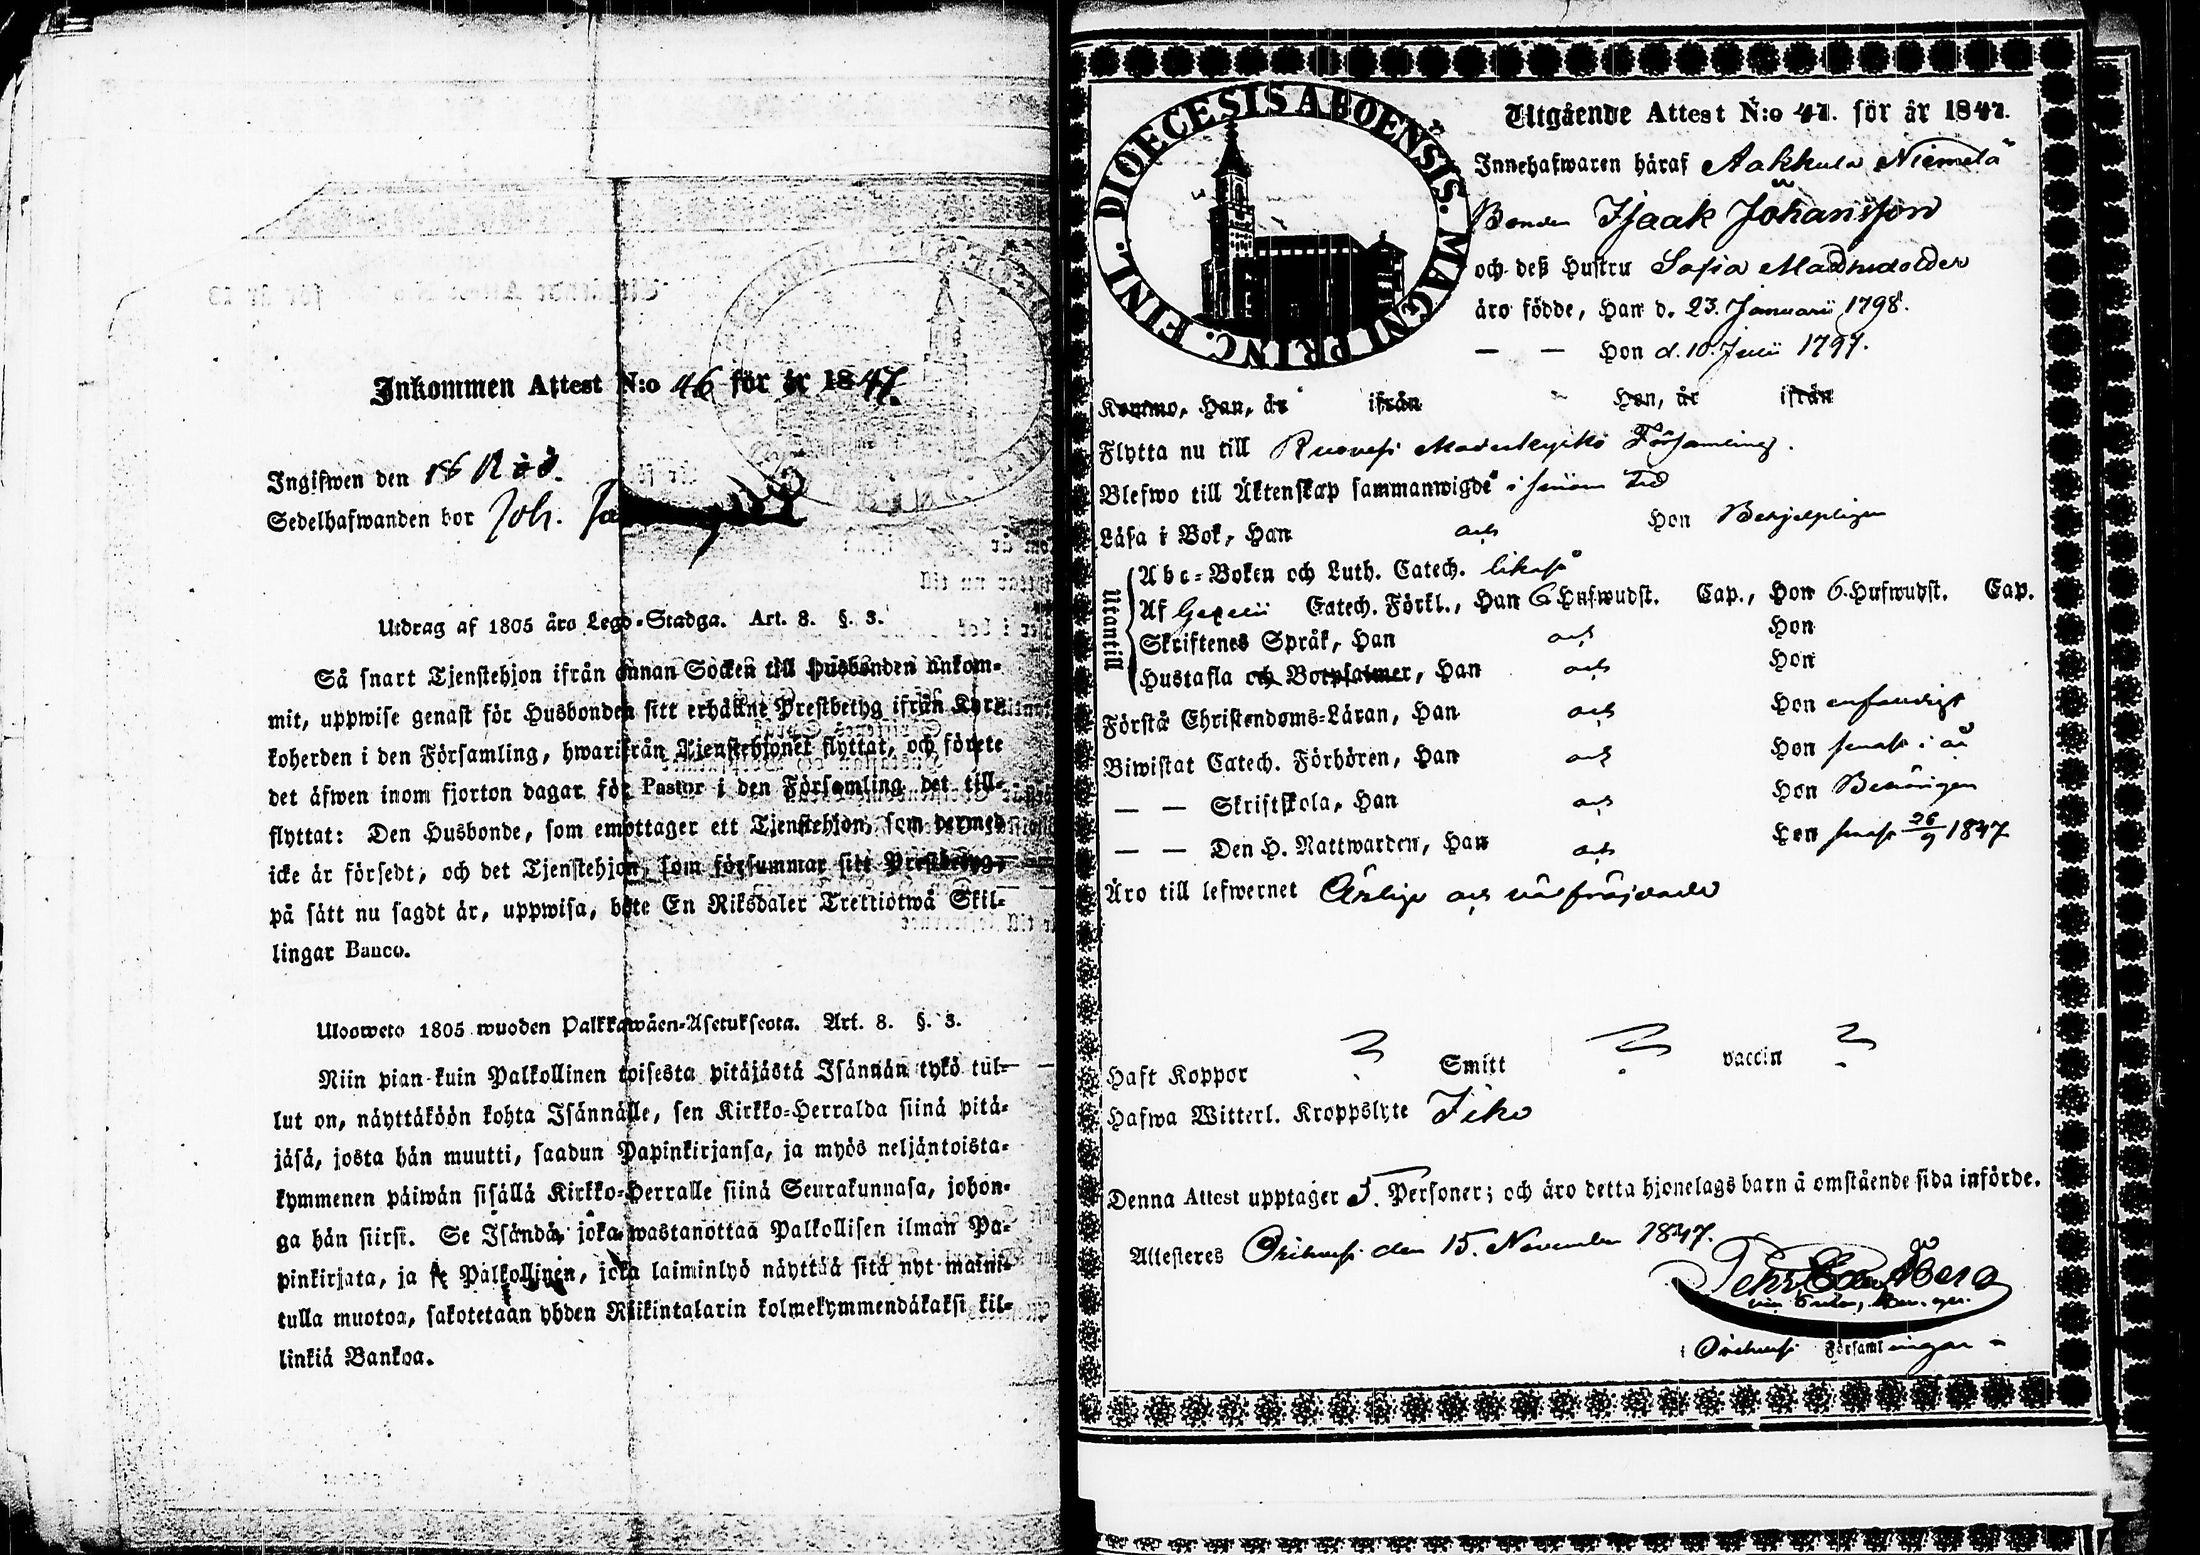 Inkommen Attest N:o 46 för år 1847.
Ingifwen den 18
Sedelhafwanden bor Joh.
Utdrag af 1805 års Lego-Stadga. Art. 8. §. 3.
Så snart Tjenstehjon ifrån annan Socken till Husbonden ankom-
mit, uppwise genast för Husbonden sitt erhållne Prestbetyg ifrån Kyr-
koherden i den Församling, hwarifrån Tjenstehjonet flyttat, och förete
det äfwen inom fjorton dagar för Pastor i den Församling det till-
flyttat: Den Husbonde, som emottager ett Tjenstehjon, som dermed
icke är försedt, och det Tjenstehjon, som försummar sitt Prestbetyg,
på sätt nu sagdt är, uppwisa, böte En Riksdaler Trettiotwå Skil-
lingar Banco.
Ulosweto 1805 wuoden Palkkawäen-Asetuksesta. Art. 8. §. 3.
Niin pian kuin Palkollinen toisesta pitäjästä Isännän tykö tul-
lut on, näyttäköön kohta Isännälle, sen Kirkko-Herralda siinä pitä-
jäsä, josta hän muutti, saadun Papinkirjansa, ja myös neljäntoista-
kymmenen päiwän sisällä Kirkko-Herralle siinä Seurakunnasa, johon-
ga hän siirsi. Se Isändä, joka wastanottaa Palkollisen ilman Pa-
pinkirjata, ja se Palkollinen, joka laiminlyö näyttää sitä nyt maini-
tulla muotoa, sakotetaan yhden Riikintalarin kolmekymmendäkaksi kil-
linkiä Bankoa.
DIOECESIS ABOENSIS. MAGNI PRINC. FINL.
Utgående Attest N:o 41. för år 1847.
Innehafwaren häraf Aakkula Niemelä
Bonden Isaak Johansson
och deß Hustru Sofia Mattsdotter
äro födde, Han d. 23. Januarii 1798.
— — Hon d. 10. Julii 1797.
Kommo, Han, år ifrån Hon, år ifrån
Flytta nu till Ruovesi Moderkyrko Församling.
Blefwo till Äktenskap sammanwigde i sinom tid
Läsa i Bok, Han och Hon Behjelpligen
Utantill
Abc-Boken och Luth. Catech. likaså
Af Gezelii Catech. Förkl., Han 6 Hufwudst. Cap., Hon 6 Hufwudst. Cap.
Skriftenes Språk, Han och Hon
Hustafla och Botpsalmer, Han och Hon
Förstå Christendoms-Läran, Han och Hon enfaldigt
Biwistat Catech. Förhören, Han och Hon senast i år
— — Skriftskola, Han och Hon Behörigen
— — Den H. Nattwarden, Han och Hon senast 26/9 1847
Äro till lefwernet Ärlige och väl frejdade
Haft Koppor ? Smitt ? vaccin ?
Hafwa Witterl. Kroppslyte Icke
Denna Attest upptager 5. Personer; och äro detta hjonelags barn å omstående sida införde.
Attesteras Orihvesi den 15. November 1847.
i Orihvesi Församlingar